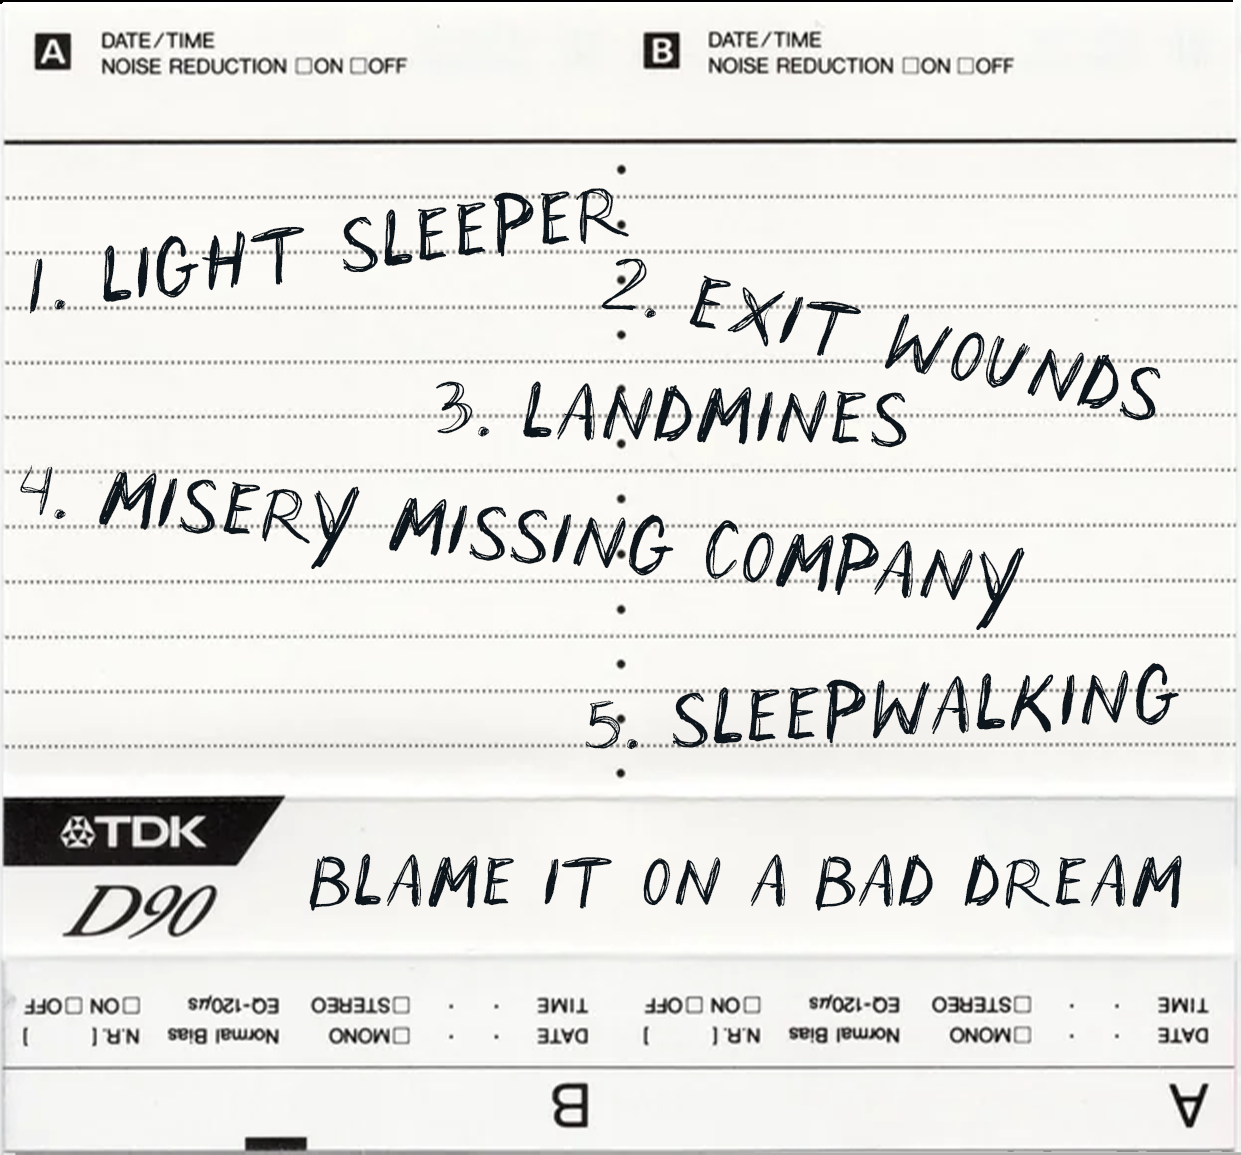 A DATE/TIME
NOISE REDUCTION □ON □OFF
B DATE/TIME
NOISE REDUCTION □ON □OFF
1. LIGHT SLEEPER
2. EXIT WOUNDS
3. LANDMINES
4. MISERY MISSING COMPANY
5. SLEEPWALKING
TDK
D90
BLAME IT ON A BAD DREAM
A
DATE · · □MONO Normal Bias N.R. [ ]
TIME · · □STEREO EQ-120μs □ON □OFF
B
DATE · · □MONO Normal Bias N.R. [ ]
TIME · · □STEREO EQ-120μs □ON □OFF